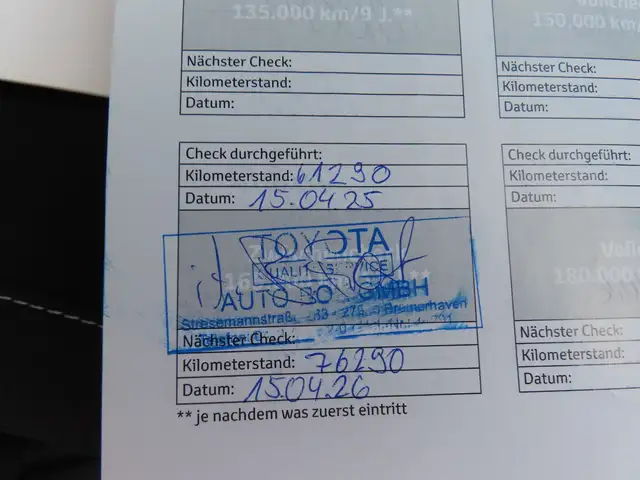 135.000 km/9 J.**
150.000 km
Nächster Check:
Kilometerstand:
Datum:
Nächster Check:
Kilometerstand:
Datum:
Check durchgeführt:
Kilometerstand: 61290
Datum: 15.04.25
TOYOTA
QUALITY SERVICE
AUTO GMBH
Stresemannstraße Bremerhaven
Nächster Check:
Kilometerstand: 76290
Datum: 15.04.26
** je nachdem was zuerst eintritt
Check durchgeführt:
Kilometerstand:
Datum:
180.000
Nächster Check:
Kilometerstand:
Datum: